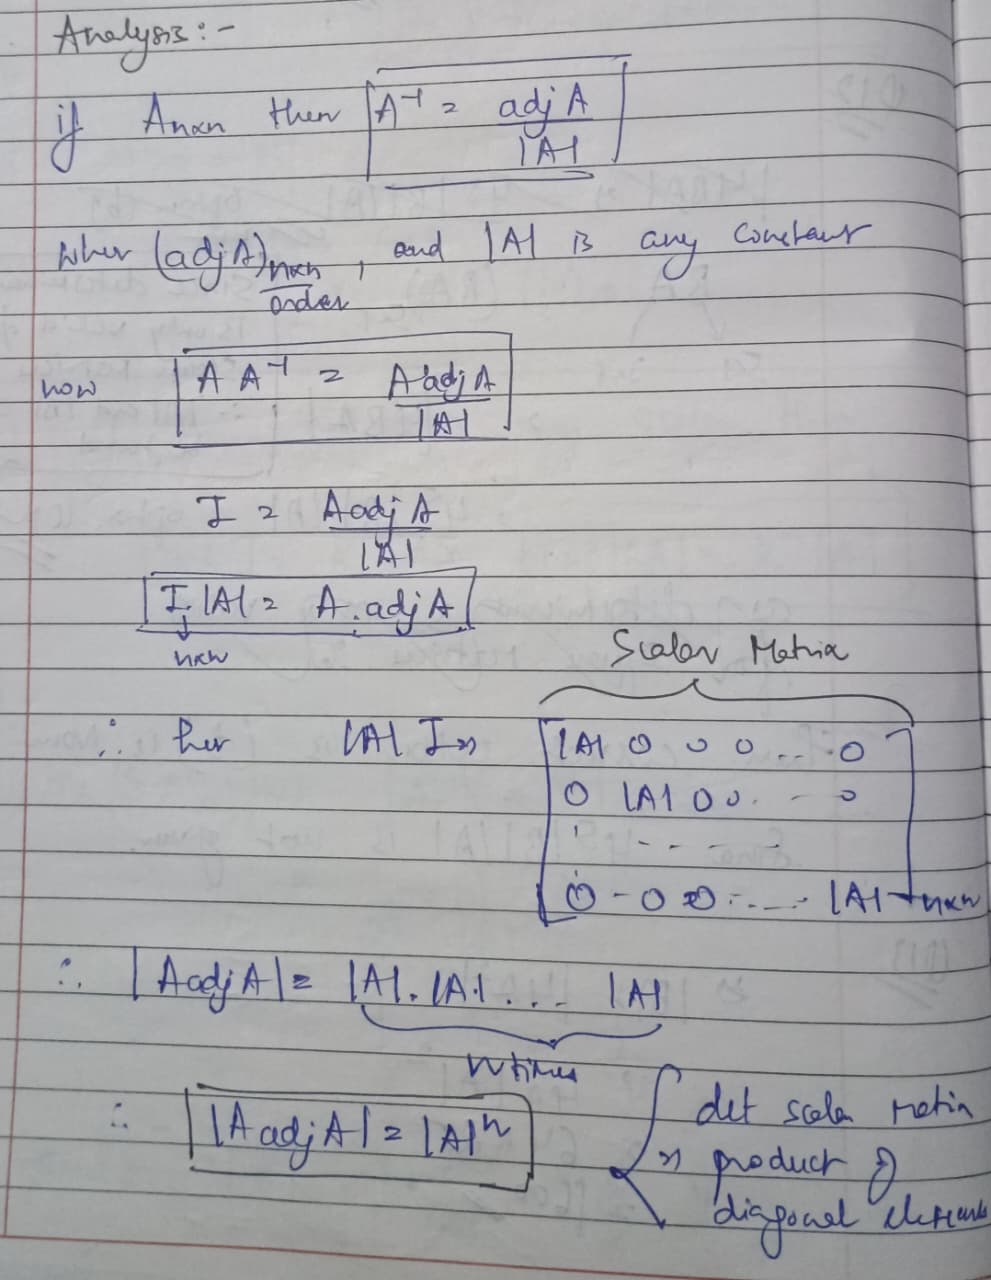 Analysis :-
if Anxn then A⁻¹ = adj A / |A|
wher (adj A)nxn , and |A| is any constant
order
now A A⁻¹ = A adj A / |A|
I = A adj A / |A|
I |A| = A . adj A
↓
nxn
Scalar Matrix
∴ her |A| I ⇒ [ |A| 0 0 0 ... 0
0 |A| 0 0 . - - 0
' - - - - -
0 - 0 0 ... |A| ] nxn
∴ |A adj A| = |A| . |A| ... |A|
n times
∴ |A adj A| = |A|ⁿ
det scalar matrix
⇒ product of
diagonal elements